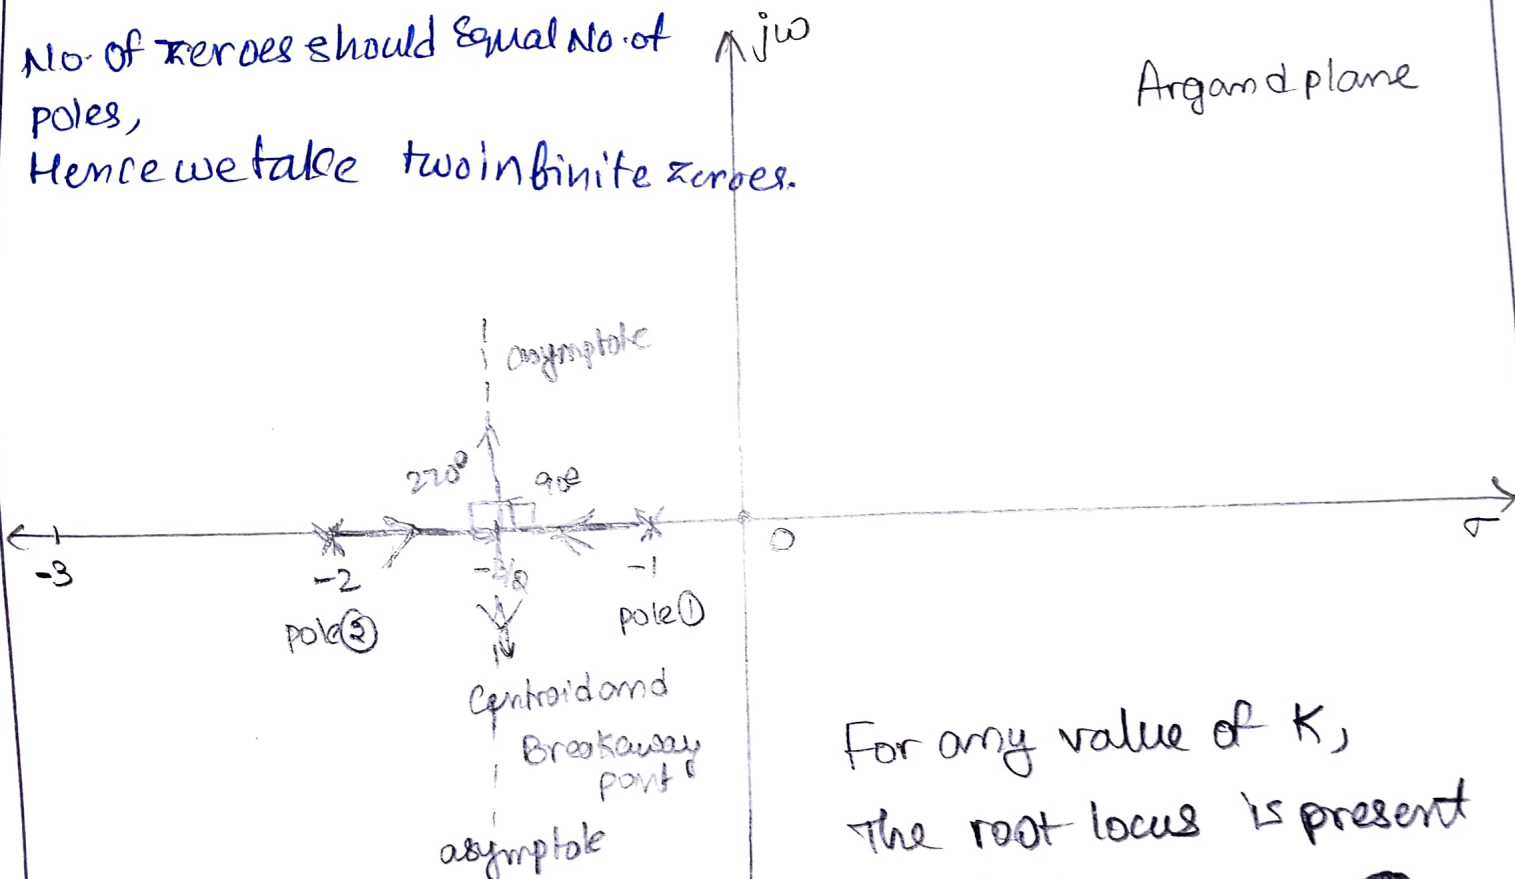 No. of zeroes should Equal No. of
jω
poles,
Argand plane
Hence we take two infinite zeroes.
asymptote
270°
90°
-3
-2
-3/2
-1
0
σ
pole②
pole①
Centroid and
Breakaway
point
asymptote
For any value of K,
The root locus is present